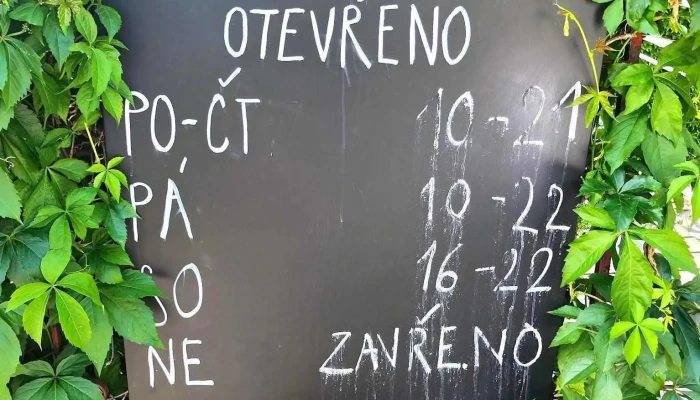 OTEVŘENO
PO-ČT 10-21
PÁ 10-22
SO 16-22
NE ZAVŘENO